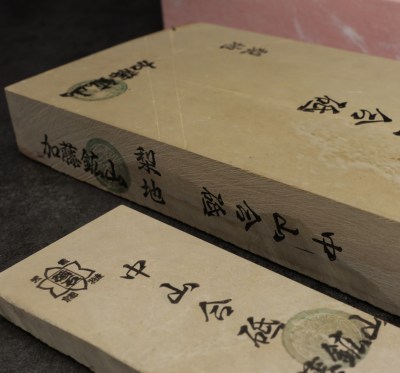 梨地
合砥
加藤鉱山
梨地
中山合砥
中山合砥
加藤鉱山